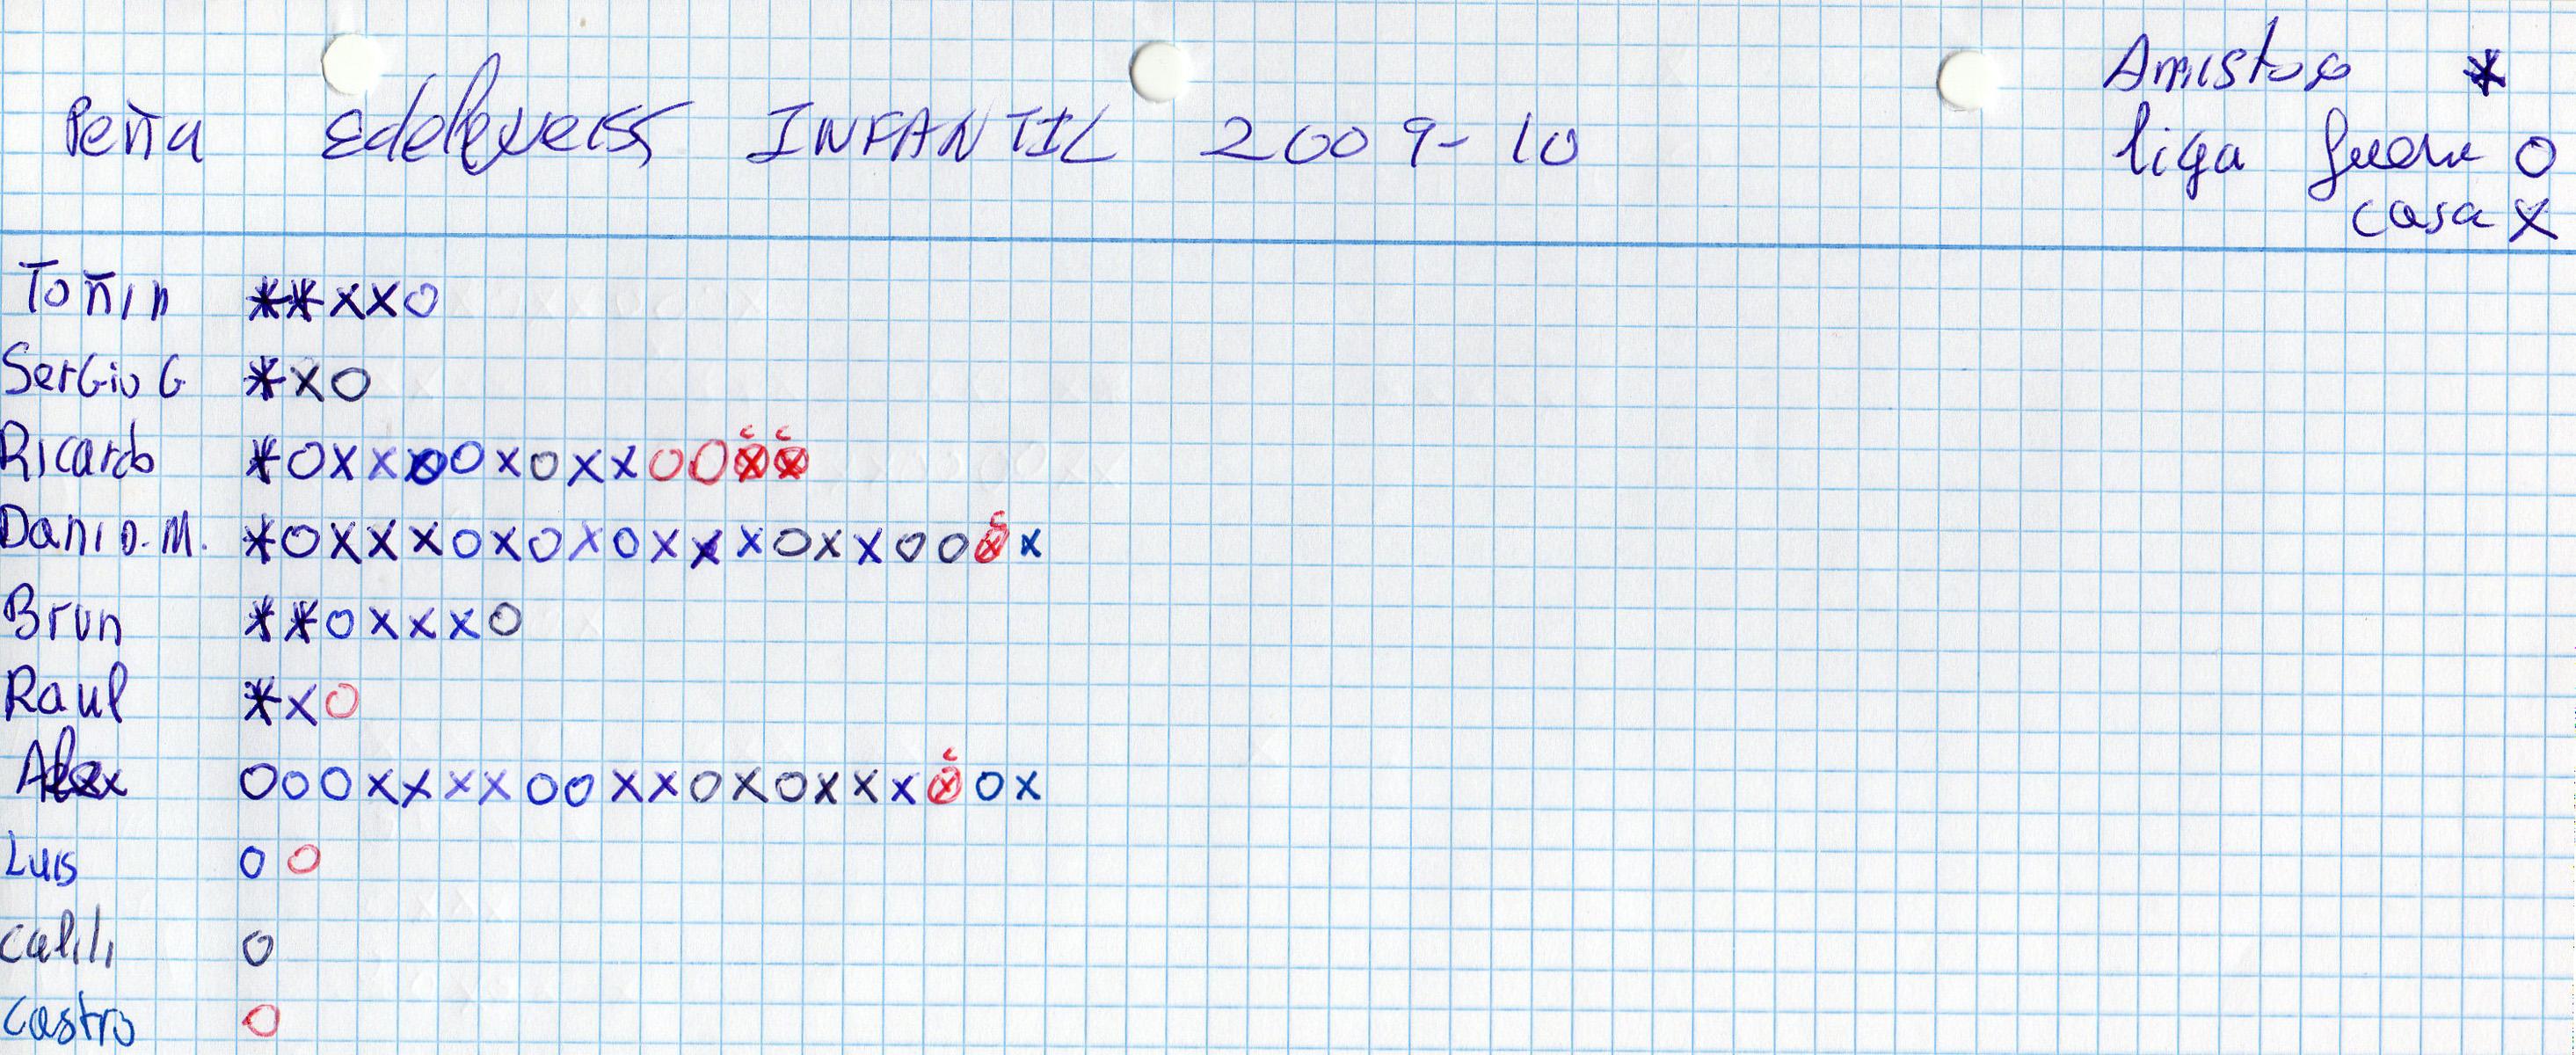 Amistoso *
Peña Edelweiss INFANTIL 2009-10
liga fuera O
casa X
Toñin **XXO
Sergio G. *XO
Ricardo *OXX OXOXXOO
Dani D.M. *OXXXOXOXOXXXOXXOO X
Brun **OXXXO
Raul *XO
Alex OOOXXXXOOXXOXOXXX OX
Luis OO
Calili O
Castro O